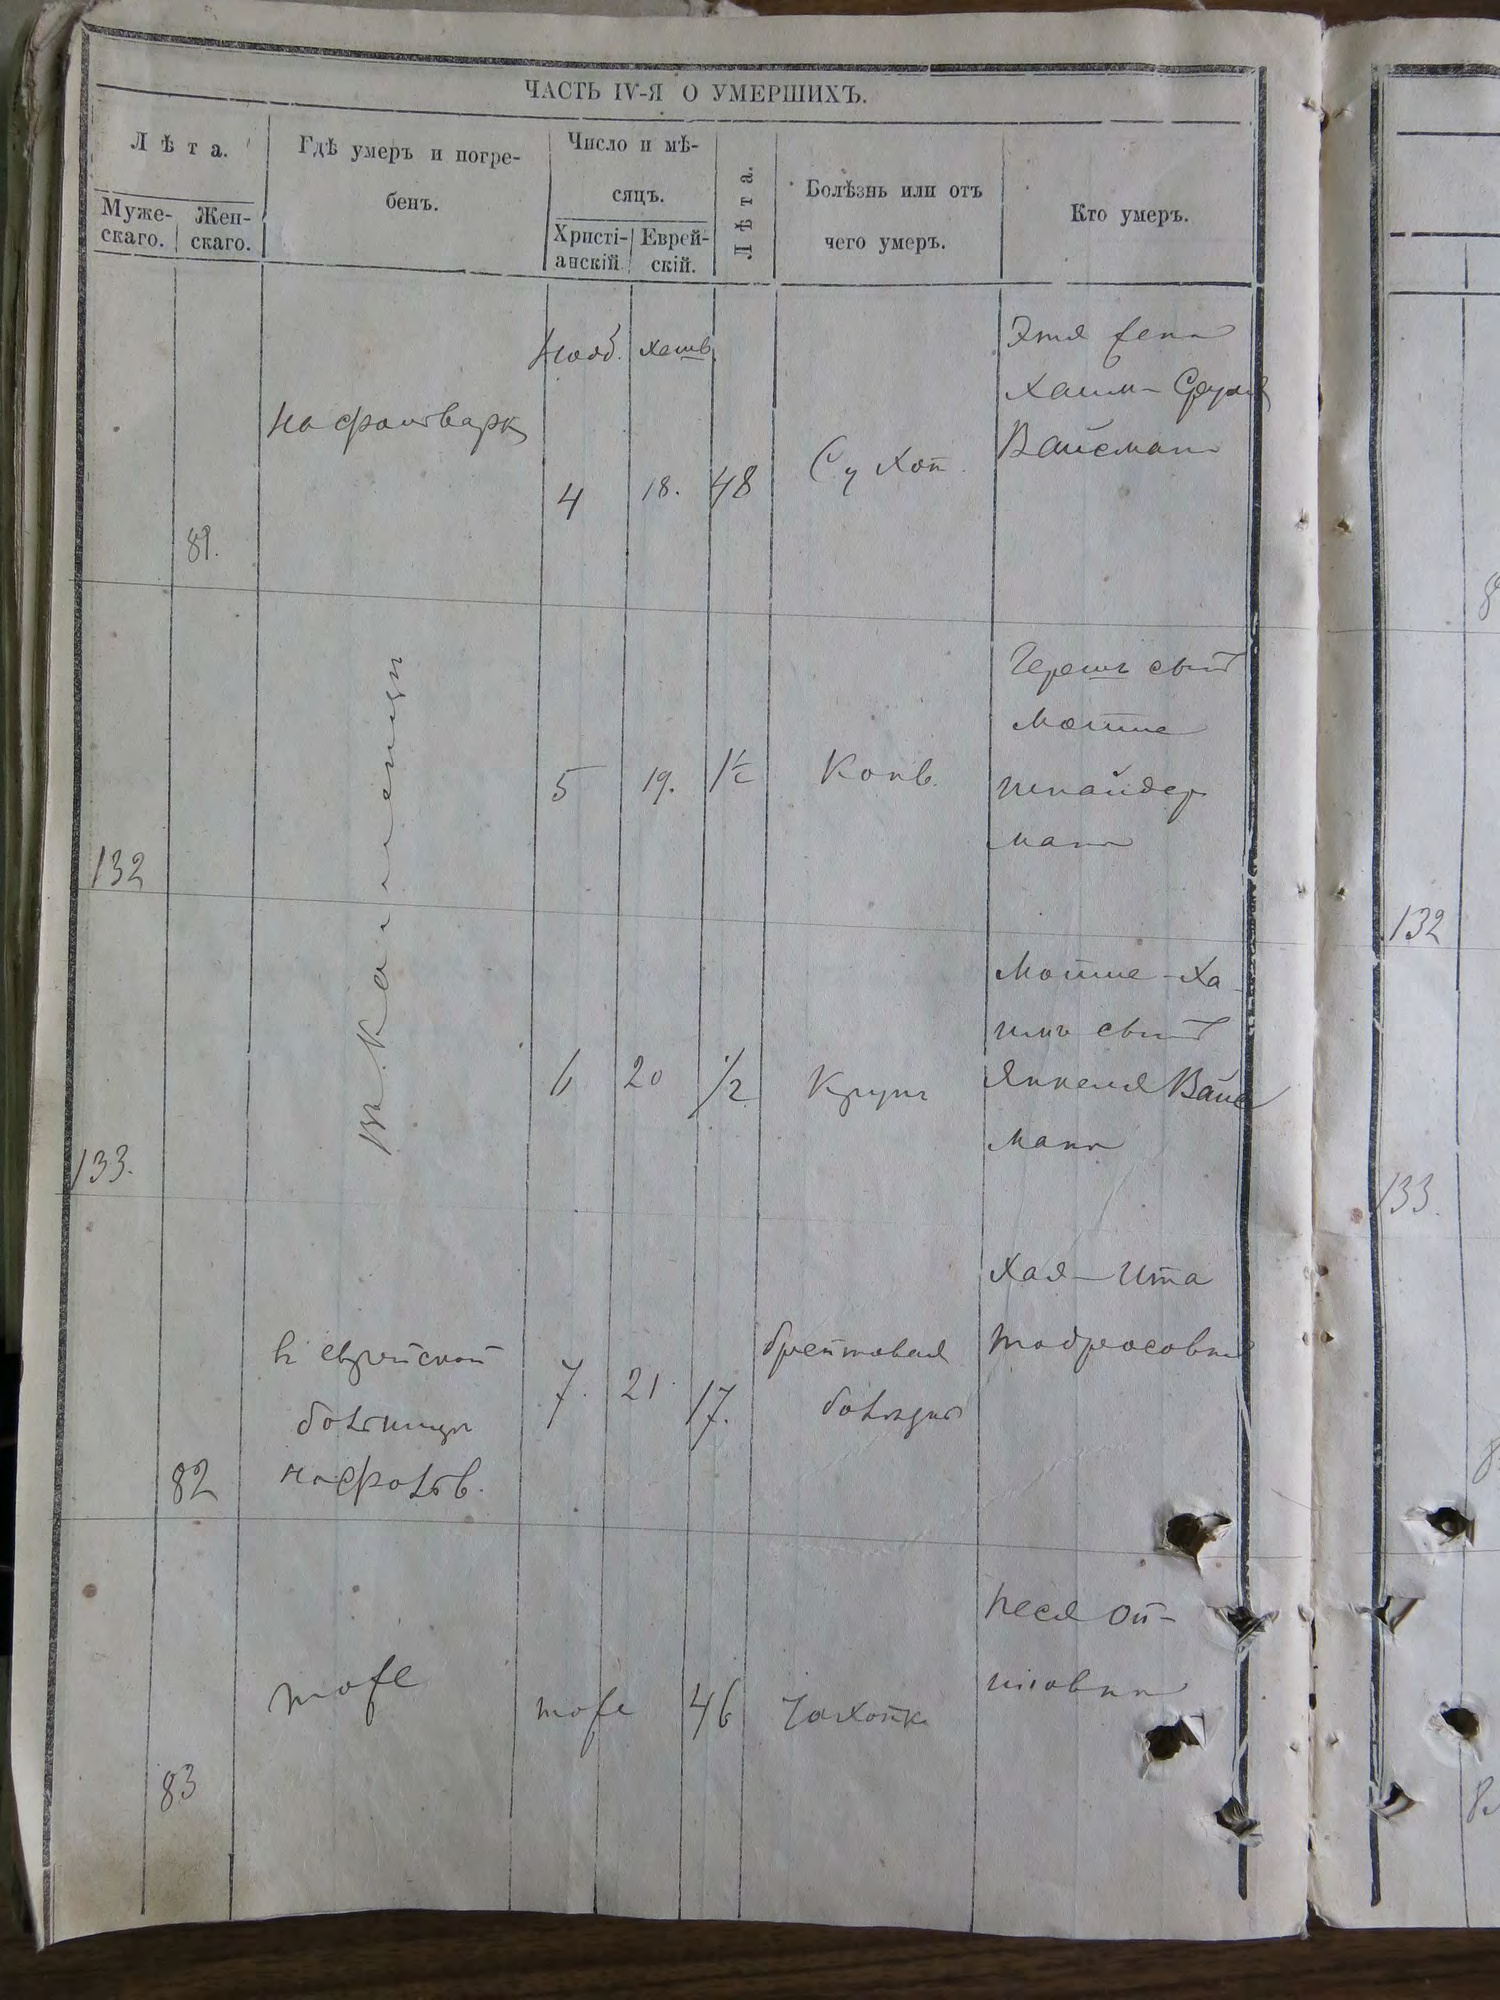 ЧАСТЬ IV-Я О УМЕРШИХЪ.
Лѣта.
Муже-
скаго.
Жен-
скаго.
Гдѣ умеръ и погре-
бенъ.
Число и мѣ-
сяцъ.
Христі-
анскій.
Еврей-
скій.
Лѣта.
Болѣзнь или отъ
чего умеръ.
Кто умеръ.
81.
На фольварк
Нояб.
4
Хешв
18.
48
Сухот.
Этя жена
Хаим-Сруля
Вайсмана
132
5
19.
1½
Конв.
Гершъ сынъ
Мотие
шнайдер
мана
133.
6
20
½
Крупъ
Мотие-Ха
имъ сынъ
Янкеля Вайс
мана
82
в еврейской
больницы
на фольв.
7.
21.
17.
больезнь
Хая-Ита
тодросовна
83
тоже
тоже
46
Чахотк
Песя
132
133.